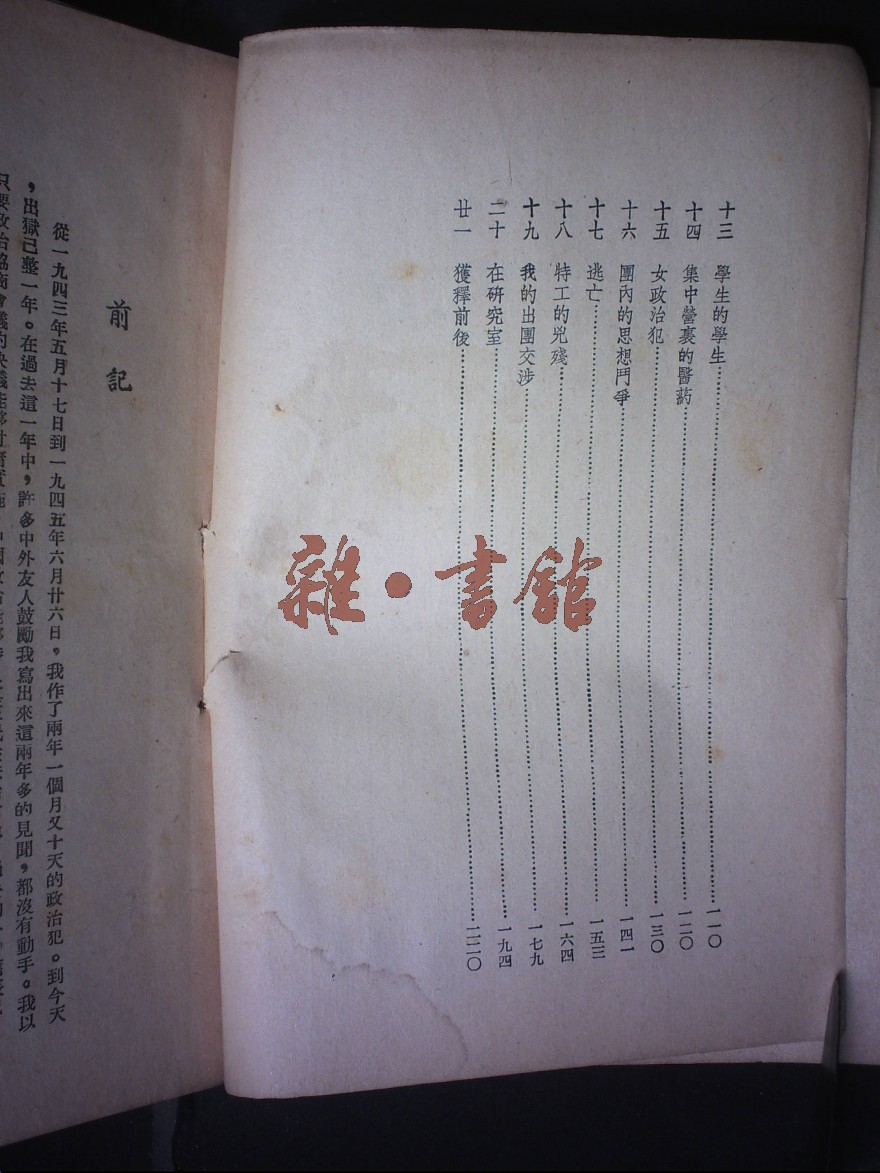 十三　學生的學生……一一〇
十四　集中營裏的醫葯……一二〇
十五　女政治犯……一三〇
十六　團內的思想鬥爭……一四一
十七　逃亡……一五三
十八　特工的兇殘……一六四
十九　我的出團交涉……一七九
二十　在研究室……一九四
廿一　獲釋前後……二二〇
雜·書館
前記
從一九四三年五月十七日到一九四五年六月廿六日，我作了兩年一個月又十天的政治犯。到今天
，出獄已整一年。在過去這一年中，許多中外友人鼓勵我寫出來這兩年多的見聞，都沒有動手。我以
只要政治協商會議的決議能